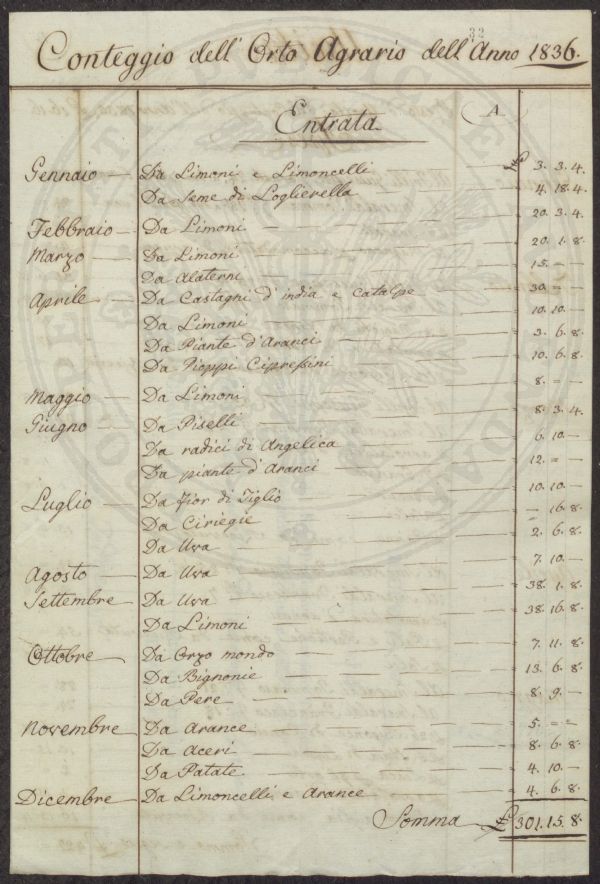 32
Conteggio dell' Orto Agrario dell' Anno 1836.
Entrata A
Gennaio — Da Limoni e Limoncelli — 3. 3. 4.
Da Seme di Loglierella — 4. 18. 4.
Febbraio — Da Limoni — 20. 3. 4.
Marzo — Da Limoni — 20. 1. 8.
Da Alaterni — 15. = —
Aprile — Da Castagni d'india e Catalpe — 30. = —
Da Limoni — 10. 10. —
Da Piante d'Aranci — 3. 6. 8.
Da Pioppi Cipressini — 10. 6. 8.
Maggio — Da Limoni — 8. = —
Giugno — Da Piselli — 8. 3. 4.
Da radici di Angelica — 6. 10. —
Da piante d'Aranci — 12. = —
Luglio — Da Fior di Tiglio — 10. 10. —
Da Ciriegie — — 16. 8.
Da Uva — 2. 6. 8.
Agosto — Da Uva — 7. 10. —
Settembre — Da Uva — 38. 1. 8.
Da Limoni — 38. 16. 8.
Ottobre — Da Orzo mondo — 7. 11. 8.
Da Bignonie — 13. 6. 8.
Da Pere — 8. 9. —
Novembre — Da Arance — 5. = =
Da Aceri — 8. 6. 8.
Da Patate — 4. 10. —
Dicembre — Da Limoncelli e Arance — 4. 6. 8.
Somma £ 301. 15. 8.